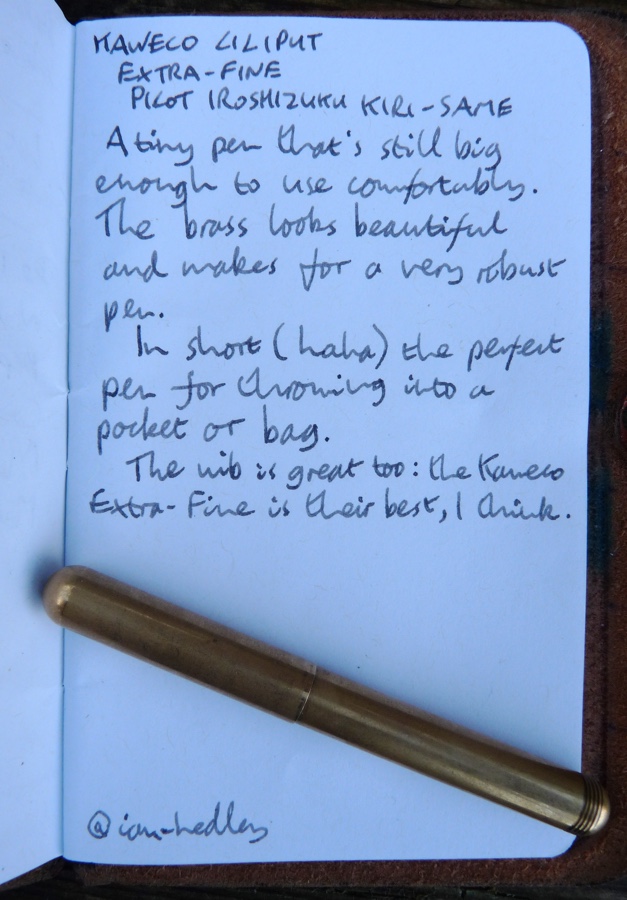 KAWECO LILIPUT
EXTRA-FINE
PILOT IROSHIZUKU KIRI-SAME
A tiny pen that's still big
enough to use comfortably.
The brass looks beautiful
and makes for a very robust
pen.
In short (haha) the perfect
pen for throwing into a
pocket or bag.
The nib is great too: the Kaweco
Extra-Fine is their best, I think.
@ian-hedley